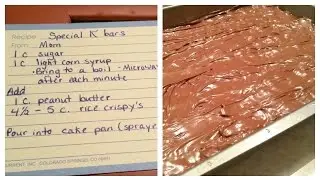 Recipe: Special K bars
From: Mom
1 c. sugar
1 c. light corn syrup
- Bring to a boil - Microwav
after each minute
Add
1 c. peanut butter
4½ - 5 c. rice crispy's
Pour into cake pan (spraye